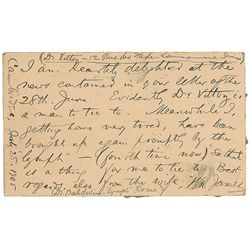 (Dr. Vittoz - 12 Rue du Midi Lausanne
I am heartily delighted at the
news contained in your letter of the
28th. June. Evidently Dr Vittoz is
a man to tie to. Meanwhile I,
getting have very tired, have been
brought up again promptly by the
lymph" - (fourth time now) so that
is a thing for me to tie to. Best
regards also from the wife, Wm James